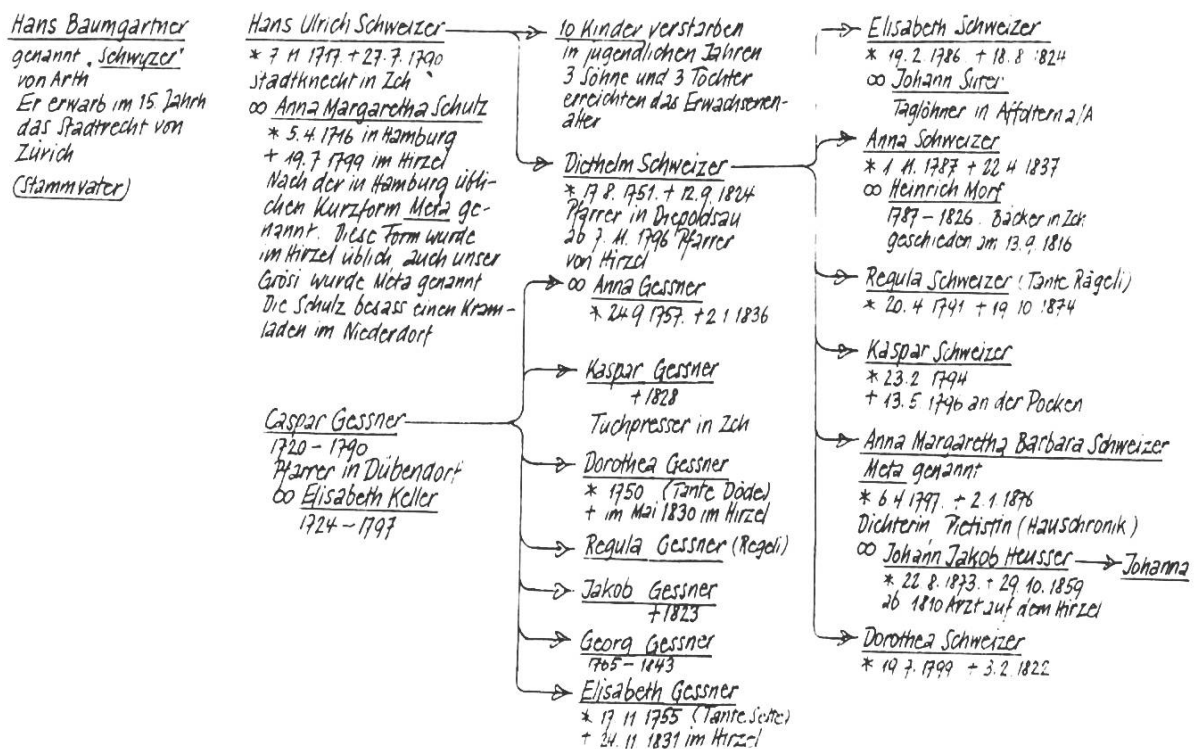 Hans Baumgartner
genannt "Schwyzer"
von Arth
Er erwarb im 15. Jahrh
das Stadtrecht von
Zürich
(Stammvater)
Hans Ulrich Schweizer
* 7 11 1717. + 27. 7. 1790
Stadtknecht in Zch
∞ Anna Margaretha Schulz
* 5. 4. 1716 in Hamburg
+ 19. 7 1799 im Hirzel
Nach der in Hamburg übli-
chen Kurzform Meta ge-
nannt. Diese Form wurde
im Hirzel üblich, auch unser
Grosi wurde Meta genannt
Die Schulz besass einen Kram-
laden im Niederdorf
Caspar Gessner
1720 - 1790
Pfarrer in Dübendorf
∞ Elisabeth Keller
1724 - 1797
10 Kinder verstarben
in jugendlichen Jahren
3 Söhne und 3 Töchter
erreichten das Erwachsenen-
alter
Diethelm Schweizer
* 17 8. 1751. + 12. 9. 1824
Pfarrer in Diepoldsau
ab 7. 11. 1796 Pfarrer
von Hirzel
∞ Anna Gessner
* 24 9 1757. + 2 1 1836
Kaspar Gessner
+ 1828
Tuchpresser in Zch
Dorothea Gessner
* 1750 (Tante Döde)
+ im Mai 1830 im Hirzel
Regula Gessner (Regeli)
Jakob Gessner
+ 1823
Georg Gessner
1765 - 1843
Elisabeth Gessner
* 17 11 1755 (Tante Sette)
+ 24. 11 1831 im Hirzel
Elisabeth Schweizer
* 19. 2. 1786. + 18. 8 1824
∞ Johann Surer
Taglöhner in Affoltern a/A
Anna Schweizer
* 1 11. 1787 + 22 4 1837
∞ Heinrich Morf
1787 - 1826. Bäcker in Zch
geschieden am 13. 9. 1816
Regula Schweizer (Tante Rägeli)
* 20. 4 1791 + 19 10 1874
Kaspar Schweizer
* 23. 2 1794
+ 13. 5. 1796 an der Pocken
Anna Margaretha Barbara Schweizer
Meta genannt
* 6 4 1797. + 2. 1. 1876
Dichterin, Pietistin (Hauschronik)
∞ Johann Jakob Heusser
* 22 8. 1873. + 29. 10. 1859
ab 1810 Arzt auf dem Hirzel
Johanna
Dorothea Schweizer
* 19 7. 1799 + 3. 2. 1822